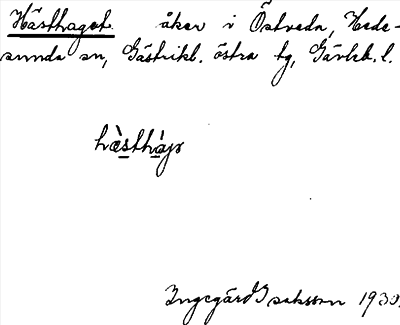 Hästhaget. åker i Östveda, Hede-
sunda sn, Gästrikl. östra tg, Gävleb. l.
hæ̀sthàgə
Ingegärd Isaksson 1930.